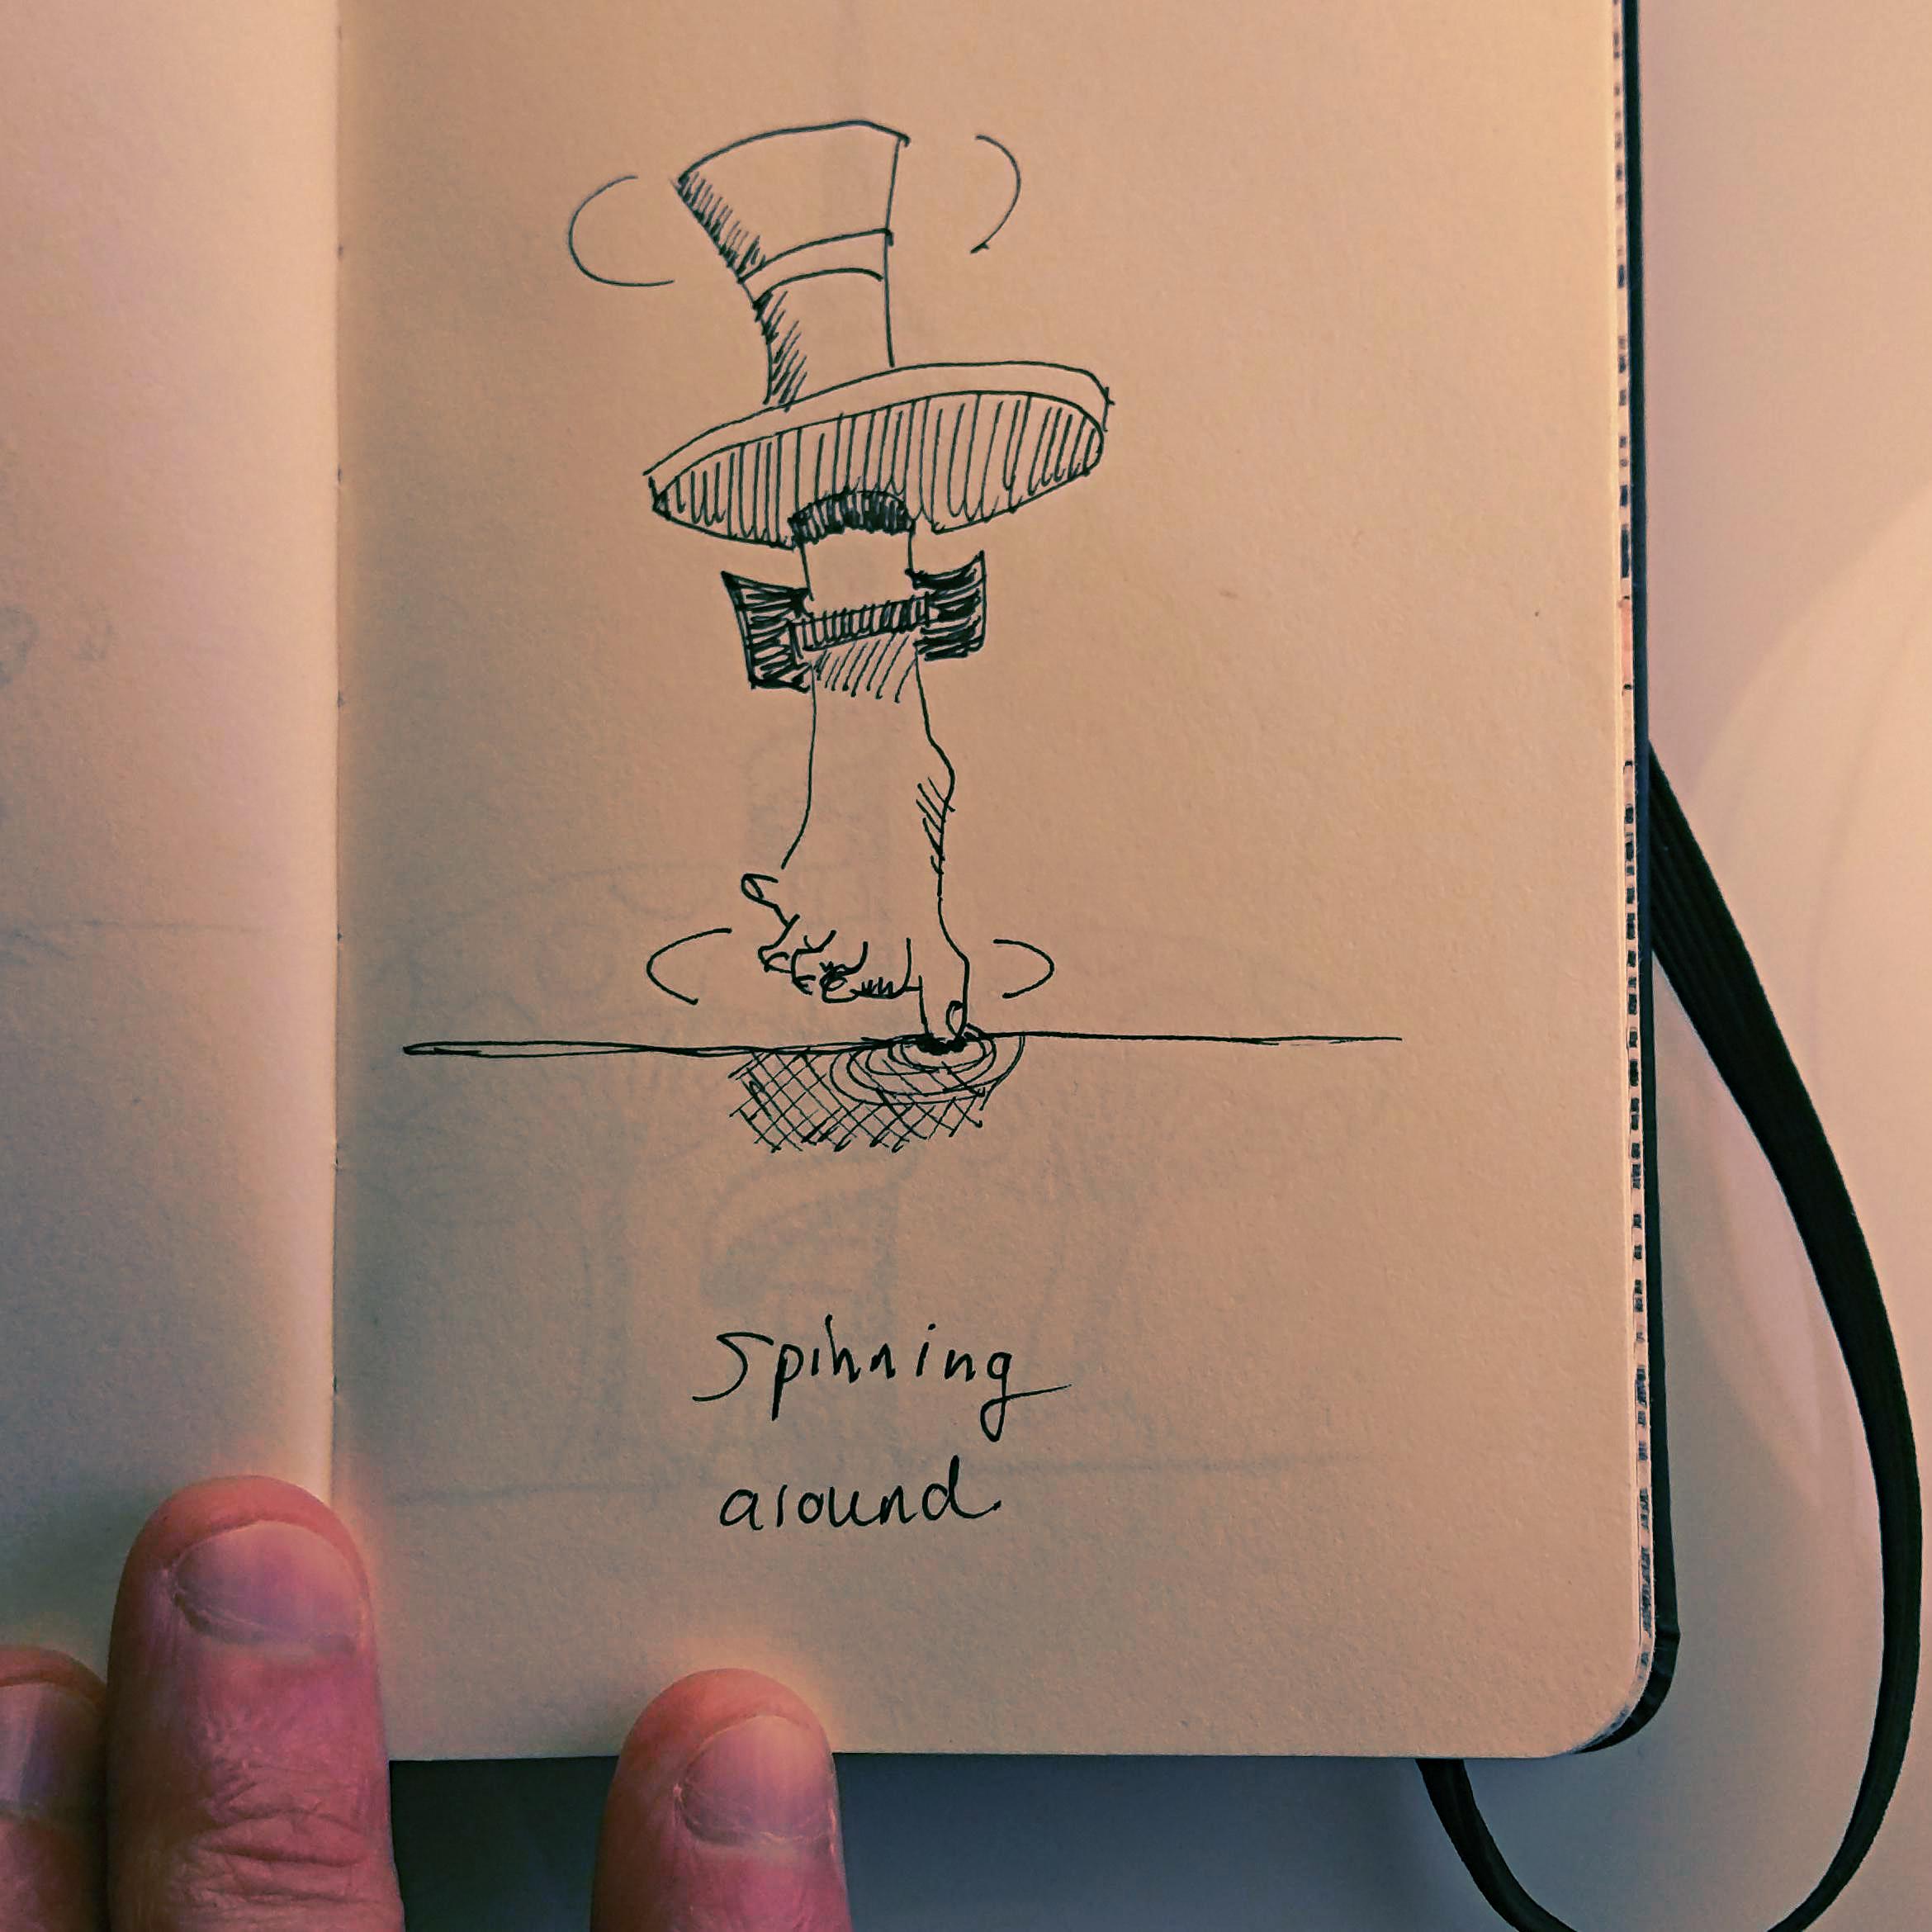 Spinning
around